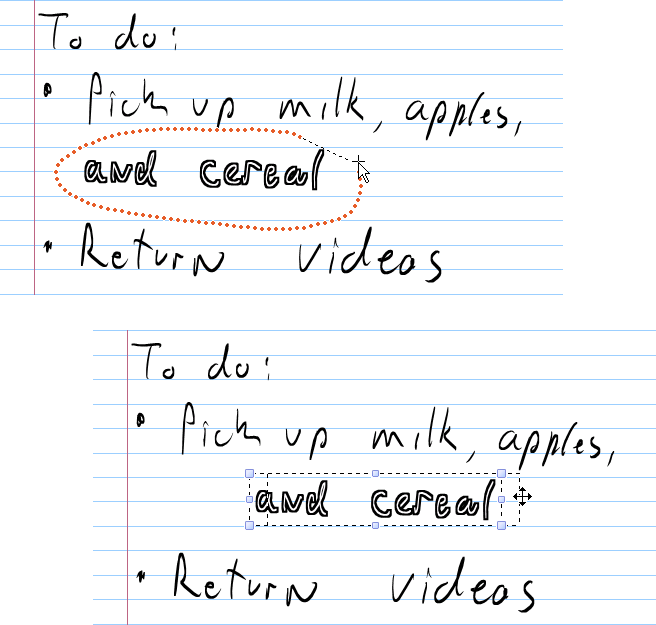 To do:
• Pick up milk, apples,
and cereal
• Return videos
To do:
• Pick up milk, apples,
and cereal
• Return videos